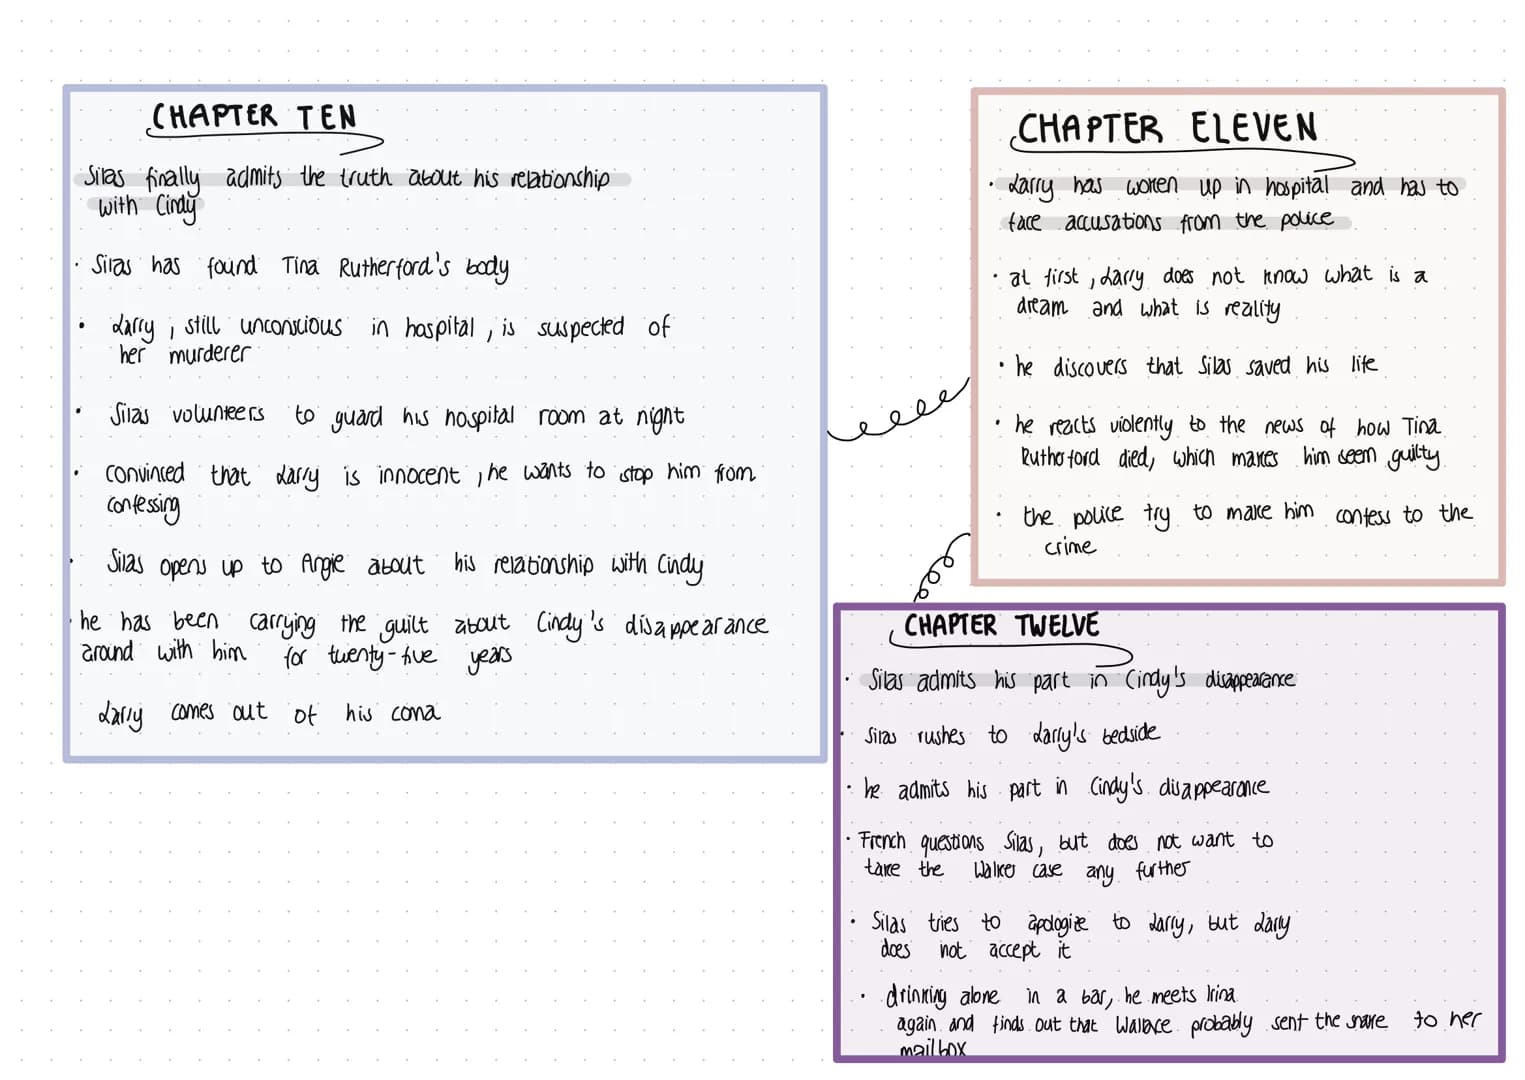 CHAPTER TEN
Silas finally admits the truth about his relationship
with Cindy
· Silas has found Tina Rutherford's body
· Larry, still unconscious in hospital, is suspected of
her murderer
· Silas volunteers to guard his hospital room at night
· convinced that Larry is innocent, he wants to stop him from
confessing
· Silas opens up to Angie about his relationship with Cindy
· he has been carrying the guilt about Cindy's disappearance
around with him for twenty-five years
Larry comes out of his coma
CHAPTER ELEVEN
· Larry has woken up in hospital and has to
face accusations from the police
· at first, Larry does not know what is a
dream and what is reality
· he discovers that Silas saved his life
· he reacts violently to the news of how Tina
Rutherford died, which makes him seem guilty
· the police try to make him confess to the
crime
CHAPTER TWELVE
· Silas admits his part in Cindy's disappearance
· Silas rushes to Larry's bedside
· he admits his part in Cindy's disappearance
· French questions Silas, but does not want to
take the Walker case any further
· Silas tries to apologize to Larry, but Larry
does not accept it
· drinking alone in a bar, he meets Irina
again and finds out that Wallace probably sent the snake to her
mailbox